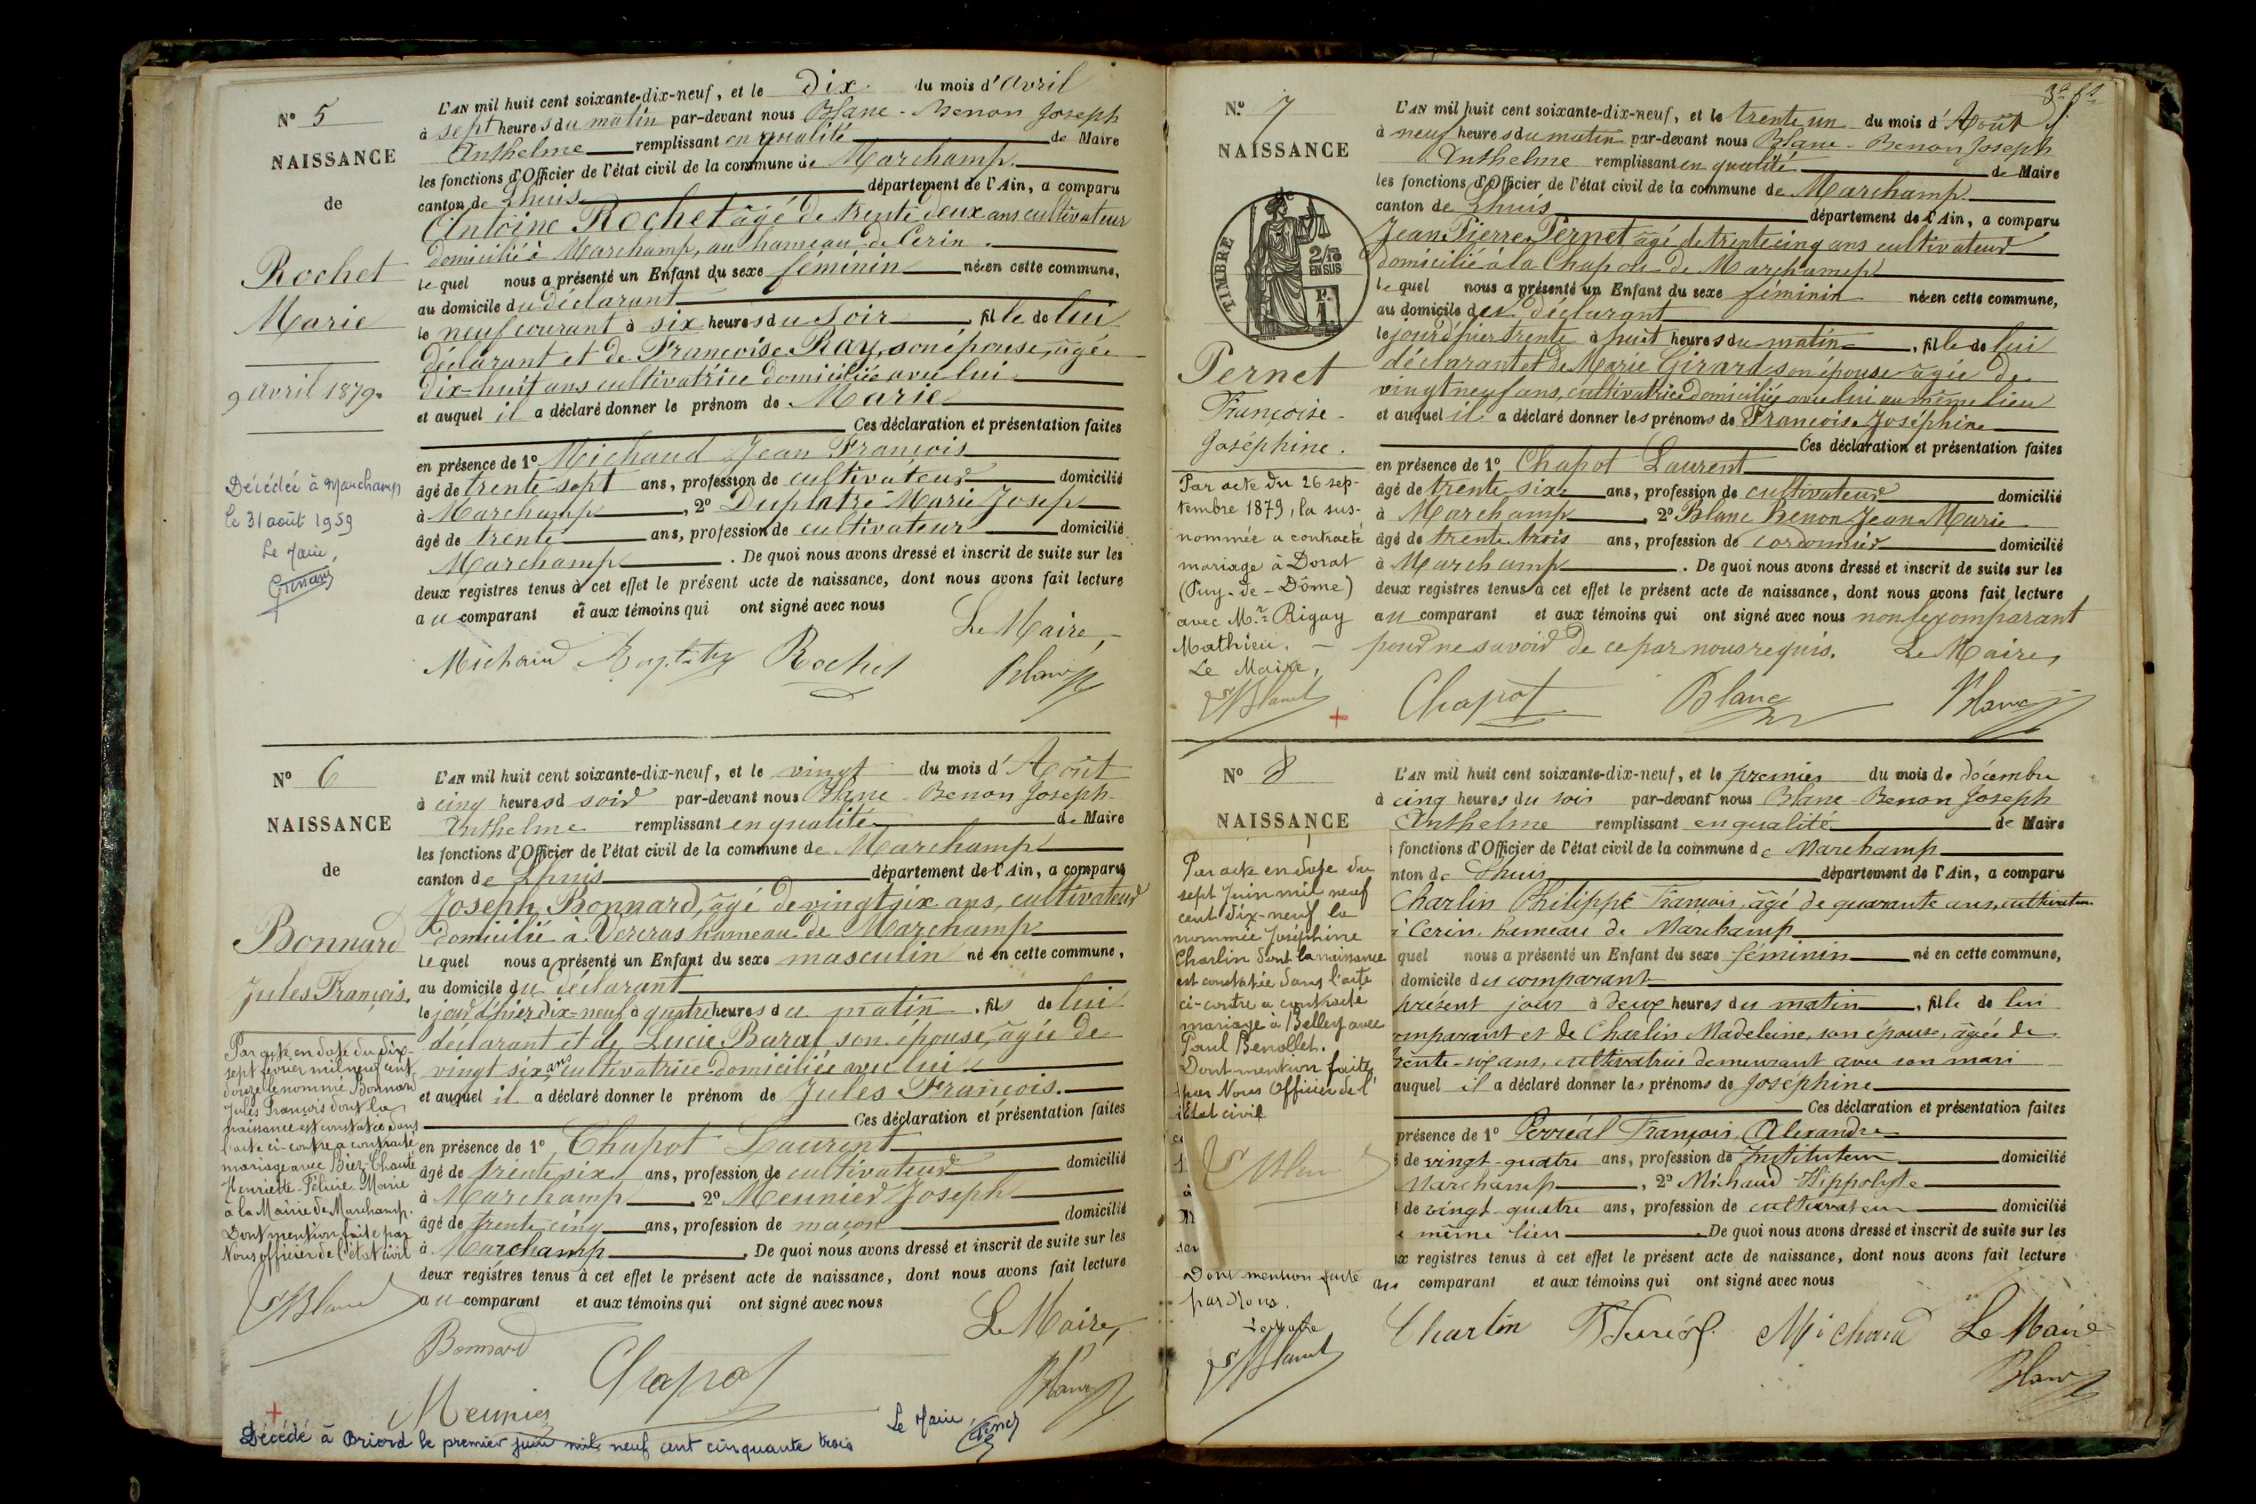 N° 5
NAISSANCE
de
Rochet
Marie
9 avril 1879.
Décédée à Marchamp
le 31 août 1959
Le Maire,
L'AN mil huit cent soixante-dix-neuf, et le Dix du mois d'avril
à sept heures du matin par-devant nous Blanc-Benon Joseph
Anthelme remplissant en qualité de Maire
les fonctions d'Officier de l'état civil de la commune de Marchamp
canton de Lhuis département de l'Ain, a comparu
Antoine Rochet âgé de trente deux ans cultivateur
domicilié à Marchamp, au hameau de Cerin.
lequel nous a présenté un Enfant du sexe féminin née en cette commune,
au domicile du déclarant
le neuf courant à six heures du soir, fille de lui
déclarant et de Françoise Ray, son épouse, âgée
dix-huit ans cultivatrice domiciliée avec lui
et auquel il a déclaré donner le prénom de Marie
Ces déclaration et présentation faites
en présence de 1° Michaud Jean François
âgé de trente sept ans, profession de cultivateur domicilié
à Marchamp, 2° Duplatre Marie Josep
âgé de trente ans, profession de cultivateur domicilié
Marchamp. De quoi nous avons dressé et inscrit de suite sur les
deux registres tenus à cet effet le présent acte de naissance, dont nous avons fait lecture
au comparant et aux témoins qui ont signé avec nous
Le Maire,
Michaud Rochet Blanc
N° 6
NAISSANCE
de
Bonnard
Jules François.
Par acte en date du dix-
sept février mil neuf cent
douze le nommé Bonnard
Jules François dont la
naissance est constatée dans
l'acte ci-contre a contracté
mariage avec Biez-Charité
Henriette-Félicie Marie
à la Mairie de Marchamp.
Dont mention faite par
Nous officier de l'état civil
Blanc
L'AN mil huit cent soixante-dix-neuf, et le vingt du mois d'Août
à cinq heures d soir par-devant nous Blanc-Benon Joseph
Anthelme remplissant en qualité de Maire
les fonctions d'Officier de l'état civil de la commune de Marchamp
canton de Lhuis département de l'Ain, a comparu
Joseph Bonnard, âgé de vingt six ans, cultivateur
domicilié à Vercras hameau de Marchamp
lequel nous a présenté un Enfant du sexe masculin né en cette commune,
au domicile du déclarant
le jour d'hier dix-neuf à quatre heures du matin, fils de lui
déclarant et de Lucie Baral son épouse, âgée de
vingt six ans cultivatrice domiciliée avec lui
et auquel il a déclaré donner le prénom de Jules François.
Ces déclaration et présentation faites
en présence de 1° Chapot Laurent
âgé de trente six ans, profession de cultivateur domicilié
à Marchamp, 2° Meunier Joseph
âgé de trente cinq ans, profession de maçon domicilié
à Marchamp. De quoi nous avons dressé et inscrit de suite sur les
deux registres tenus à cet effet le présent acte de naissance, dont nous avons fait lecture
au comparant et aux témoins qui ont signé avec nous
Le Maire,
Bonnard Chapot Blanc
Meunier
Le Maire,
Décédé à Briord le premier juin mil neuf cent cinquante trois
N° 7
NAISSANCE
de
TIMBRE
2/10
EN SUS
Pernet
Françoise-
Joséphine.
Par acte du 26 sep-
tembre 1879, la sus-
nommée a contracté
mariage à Dorat
(Puy-de-Dôme)
avec Mr Rigay
Mathieu.
Le Maire,
Blanc
L'AN mil huit cent soixante-dix-neuf, et le trente un du mois d'Août
à neuf heures du matin par-devant nous Blanc-Benon Joseph
Anthelme remplissant en qualité de Maire
les fonctions d'Officier de l'état civil de la commune de Marchamp
canton de Lhuis département de l'Ain, a comparu
Jean Pierre Pernet âgé de trente cinq ans cultivateur
domicilié à la Chapou de Marchamp
lequel nous a présenté un Enfant du sexe féminin née en cette commune,
au domicile du déclarant
le jour d'hier trente à huit heures du matin, fille de lui
déclarant et de Marie Girard son épouse âgée de
vingt neuf ans, cultivatrice domiciliée avec lui au même lieu
et auquel il a déclaré donner les prénoms de Françoise Joséphine
Ces déclaration et présentation faites
en présence de 1° Chapot Laurent
âgé de trente six ans, profession de cultivateur domicilié
à Marchamp, 2° Blanc Benon Jean Marie
âgé de trente trois ans, profession de cordonnier domicilié
à Marchamp. De quoi nous avons dressé et inscrit de suite sur les
deux registres tenus à cet effet le présent acte de naissance, dont nous avons fait lecture
au comparant et aux témoins qui ont signé avec nous non le comparant
pour ne savoir de ce par nous requis. Le Maire,
Chapot Blanc Blanc
N° 8
NAISSANCE
Par acte en date du
sept Juin mil neuf
cent dix-neuf la
nommée Joséphine
Charlin dont la naissance
est constatée dans l'acte
ci-contre a contracté
mariage à Belley avec
Paul Benollet.
Dont mention faite
par Nous Officier de l'
Etat civil
Blanc
Dont mention faite
par Nous.
Le Maire
Blanc
L'AN mil huit cent soixante-dix-neuf, et le premier du mois de décembre
à cinq heures du soir par-devant nous Blanc-Benon Joseph
Anthelme remplissant en qualité de Maire
fonctions d'Officier de l'état civil de la commune de Marchamp
nton de Lhuis département de l'Ain, a comparu
Charlin Philippe François, âgé de quarante ans, cultivateur
à Cerin, hameau de Marchamp
quel nous a présenté un Enfant du sexe féminin né en cette commune,
domicile du comparant
présent jour à deux heures du matin, fille de lui
omparant et de Charlin Madeleine, son épouse, âgée de
ans, cultivatrice demeurant avec son mari
auquel il a déclaré donner les prénoms de Joséphine
Ces déclaration et présentation faites
présence de 1° Perréal François Alexandre
de vingt-quatre ans, profession de Instituteur domicilié
Marchamp, 2° Michaud Hippolyte
de vingt quatre ans, profession de cultivateur domicilié
même lieu. De quoi nous avons dressé et inscrit de suite sur les
ux registres tenus à cet effet le présent acte de naissance, dont nous avons fait lecture
au comparant et aux témoins qui ont signé avec nous
Charlin Michaud Le Maire
Blanc